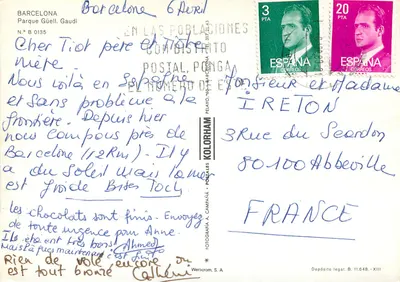 BARCELONA
Parque Güell. Gaudí
N.º B 0135
Barcelona 6 Avril
EN LAS POBLACIONES
CON DISTRITO
POSTAL, PONGA
EL NUMERO DE EL
3
PTA
ESPAÑA
CORREOS
20
PTA
ESPAÑA
CORREOS
Cher Tiot père et
mère.
Nous voilà en Espagne
et sans problème a la
frontière. Depuis hier
nous campons près de
Barcelone (12 Km). Il y
a du Soleil mais la mer
est froide Bises Toch
les chocolats sont finis. Envoyez
de toute urgence pour Anne.
Ils étaient très bons Ahmed
Mais à ... maintenant c'est fini
Rien de volé encore on
est tout bronzé Cathérine
KOLORHAM
FOTOGRAFIA A. CAMPAÑA
Monsieur et Madame
IRETON
3 Rue du Scardon
80100 Abbeville
FRANCE
Wersuram, S. A.
Depósito legal B. 11.648-XII